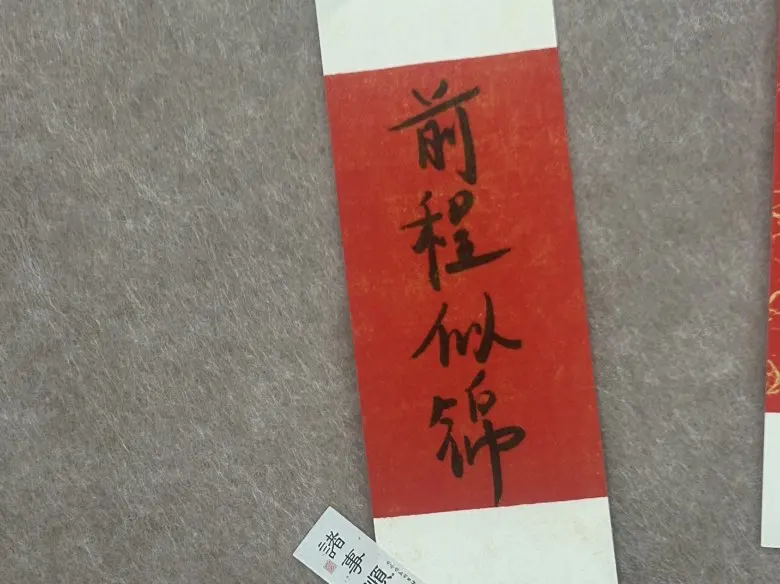 前程似锦
諸事順